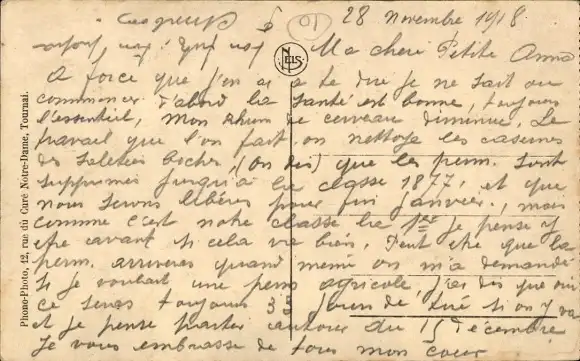 28 Novembre 1918
Ma chere Petite Anna
A force que j'en ai a te dire je ne sait ou
commencer d'abord la santé est bonne, toujours
l'essentiel, mon Rhume de cerveau diminue. Le
travail que l'on fait, on nettoye les casernes
des Saletées boches, (On dis) que les perm. sont
supprimés jusqu'à la classe 1877, et que
nous serons libérés pour fin janvier, mais
comme c'est notre classe la 1ère je pense y
etre avant si cela va bien. Peut etre que la
perm. arrivera quand meme on m'a demandé
si je voulait une perm agricole j'ai dis que oui
ce seras toujours 33 jours de tiré si on y va
et je pense partir autour du 15 Décembre
Je vous embrasse de tous mon coeur
NELS
Phono-Photo, 42, rue du Curé Notre-Dame, Tournai.